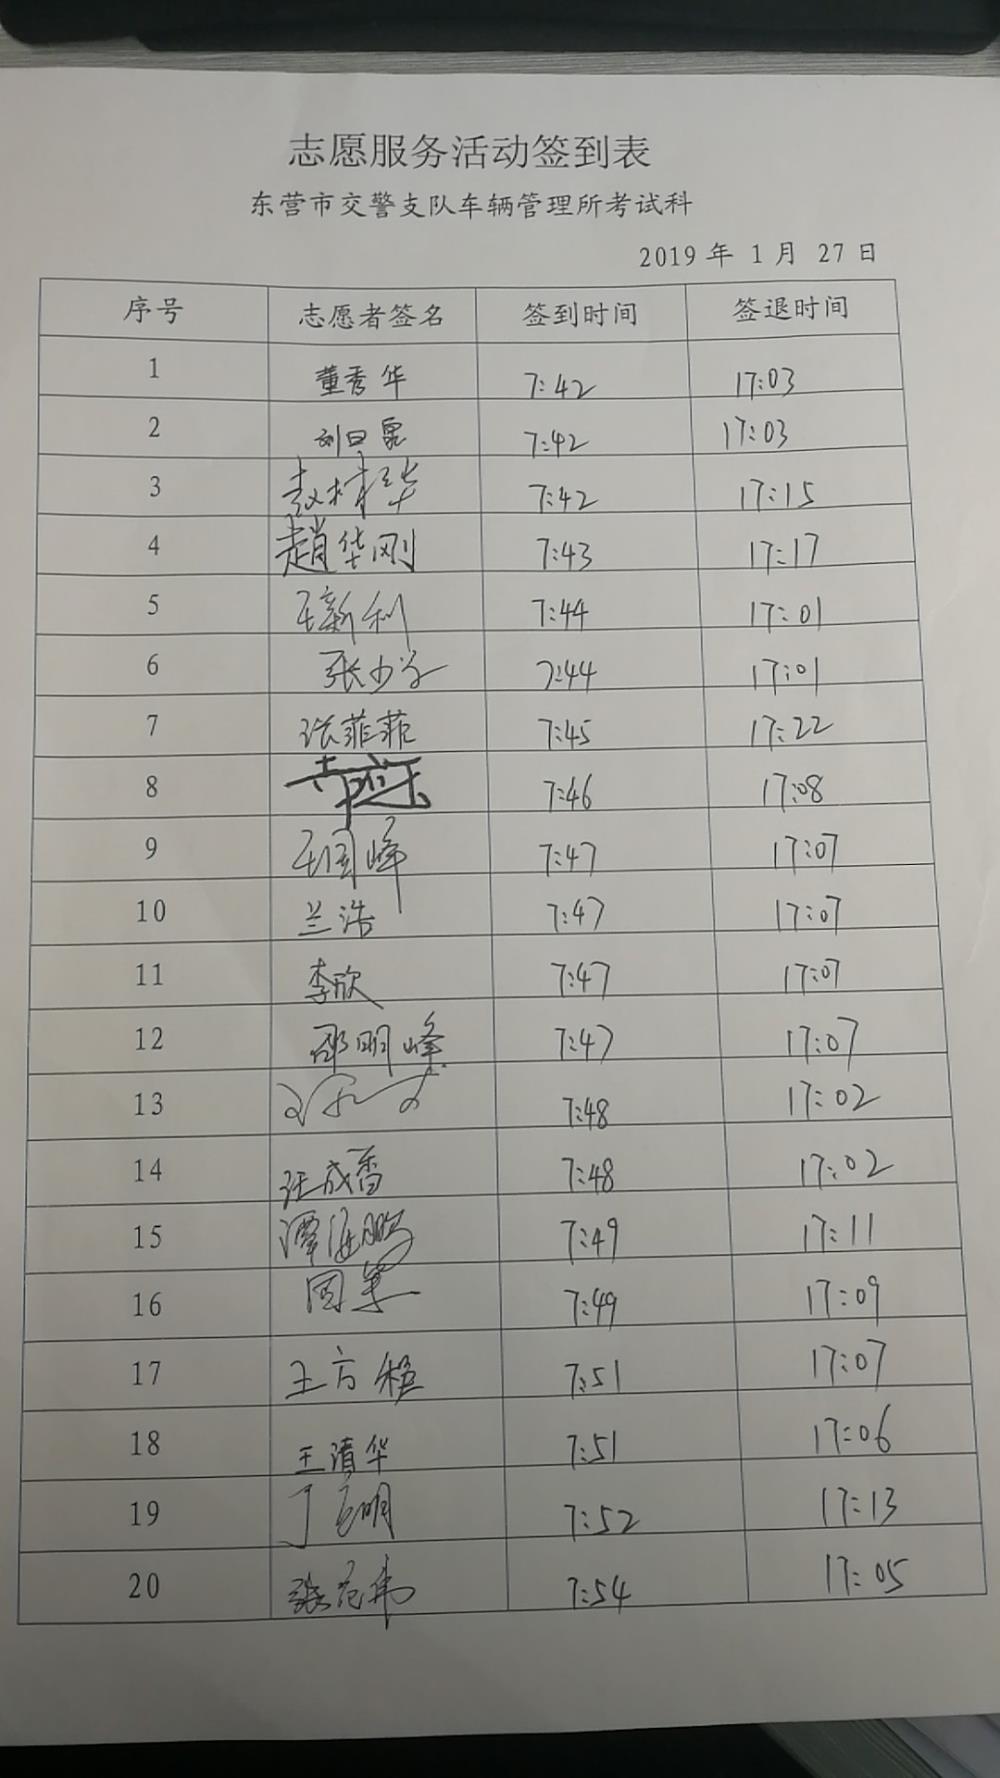 志愿服务活动签到表
东营市交警支队车辆管理所考试科
2019 年 1 月 27 日
序号 志愿者签名 签到时间 签退时间
1 董秀华 7:42 17:03
2 7:42 17:03
3 赵树华 7:42 17:15
4 趙华刚 7:43 17:17
5 王新利 7:44 17:01
6 7:44 17:01
7 张菲菲 7:45 17:22
8 7:46 17:08
9 王国峰 7:47 17:07
10 兰浩 7:47 17:07
11 李欣 7:47 17:07
12 邵明峰 7:47 17:07
13 7:48 17:02
14 汪成香 7:48 17:02
15 谭海鹏 7:49 17:11
16 7:49 17:09
17 7:51 17:07
18 王清华 7:51 17:06
19 7:52 17:13
20 7:54 17:05